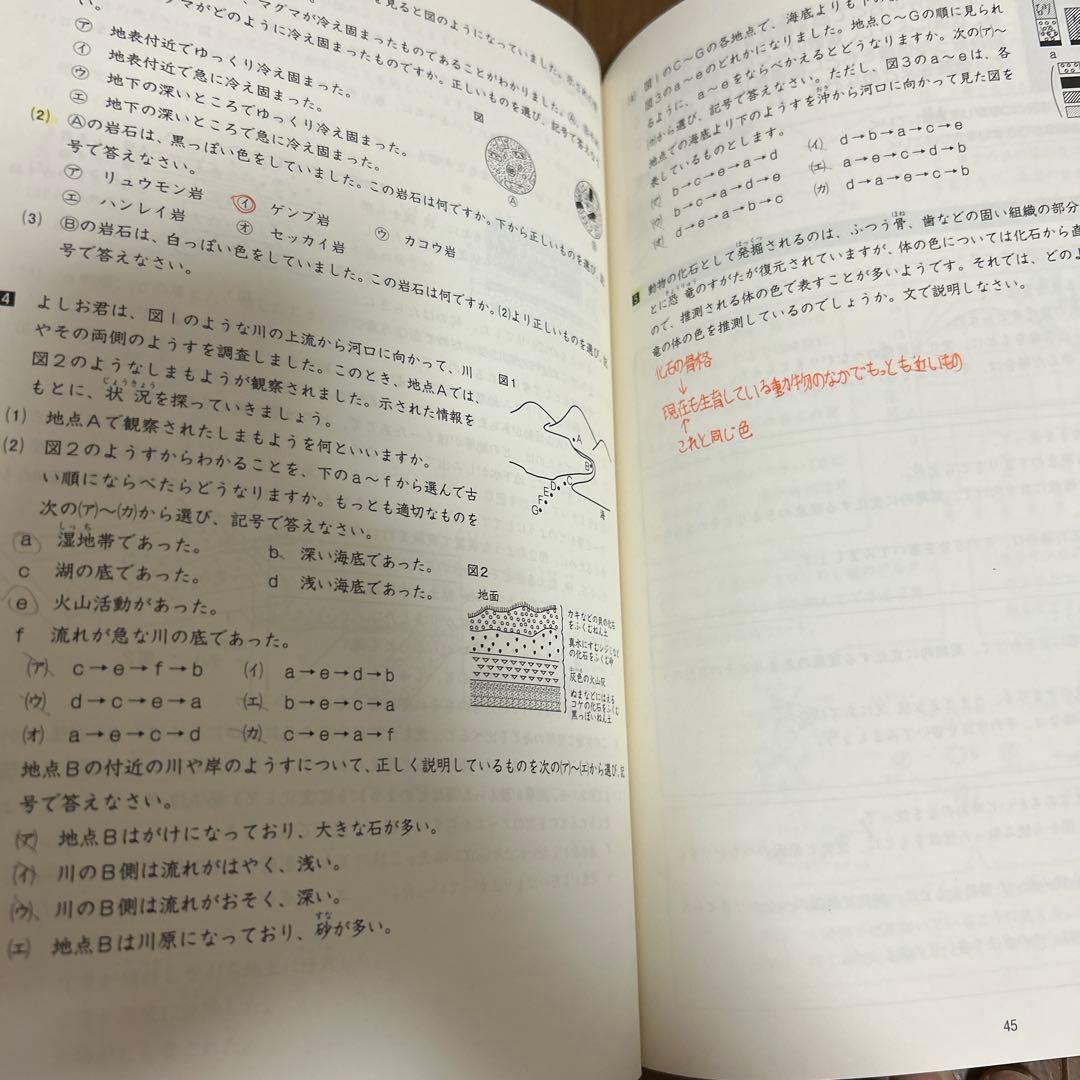 を見ると図のようになっていました。
マグマが冷え固まったものであることがわかりました。
マがどのように冷え固まったものですか。正しいものを選び、記号で答えな
㋐ 地表付近でゆっくり冷え固まった。
㋑ 地表付近で急に冷え固まった。
㋒ 地下の深いところでゆっくり冷え固まった。
㋓ 地下の深いところで急に冷え固まった。
図
Ⓐ
Ⓑ
(2) Ⓐの岩石は、黒っぽい色をしていました。この岩石は何ですか。下から正しいものを選び、記
号で答えなさい。
㋐ リュウモン岩
㋑ ゲンブ岩
㋒ カコウ岩
㋓ ハンレイ岩
㋔ セッカイ岩
(3) Ⓑの岩石は、白っぽい色をしていました。この岩石は何ですか。(2)より正しいものを選び、記
号で答えなさい。
4 よしお君は、図1のような川の上流から河口に向かって、川
やその両側のようすを調査しました。このとき、地点Aでは、
図2のようなしまもようが観察されました。示された情報を
もとに、状況を探っていきましょう。
じょうきょう
図1
A
B
C
D
E
F
G
海
(1) 地点Aで観察されたしまもようを何といいますか。
(2) 図2のようすからわかることを、下のa～fから選んで古
い順にならべたらどうなりますか。もっとも適切なものを
次の(ア)～(カ)から選び、記号で答えなさい。
しっち
a 湿地帯であった。
b 深い海底であった。
c 湖の底であった。
d 浅い海底であった。
e 火山活動があった。
f 流れが急な川の底であった。
(ア) c→e→f→b
(イ) a→e→d→b
(ウ) d→c→e→a
(エ) b→e→c→a
(オ) a→e→c→d
(カ) c→e→a→f
図2
地面
カキなどの貝の化石
をふくむねん土
真水にすむシジミなど
の化石をふくむ砂
はいいろ
灰色の火山灰
ぬまなどにはえる
コケの化石をふくむ
黒っぽいねん土
地点Bの付近の川や岸のようすについて、正しく説明しているものを次の(ア)～(エ)から選び、記
号で答えなさい。
(ア) 地点Bはがけになっており、大きな石が多い。
(イ) 川のB側は流れがはやく、浅い。
(ウ) 川のB側は流れがおそく、深い。
すな
(エ) 地点Bは川原になっており、砂が多い。
図1のC～Gの各地点で、海底よりも下の
図3のa～eのどれかになりました。地点C～Gの順に見られ
るように、a～eをならべかえるとどうなりますか。次の(ア)～
(カ)から選び、記号で答えなさい。ただし、図3のa～eは、各
おき
地点での海底より下のようすを沖から河口に向かって見た図を
表しているものとします。
a
(ア) b→c→e→a→d
(イ) d→b→a→c→e
(ウ) b→c→a→d→e
(エ) a→e→c→d→b
(オ) d→e→a→b→c
(カ) d→a→e→c→b
はっくつ
ほね
5 動物の化石として発掘されるのは、ふつう骨、歯などの固い組織の部分
きょうりゅう
とに恐竜のすがたが復元されていますが、体の色については化石から直
ので、推測される体の色で表すことが多いようです。それでは、どのよ
竜の体の色を推測しているのでしょうか。文で説明しなさい。
化石の骨格
↓
現在も生育している動物のなかでもっとも近いもの
↑
これと同じ色
45